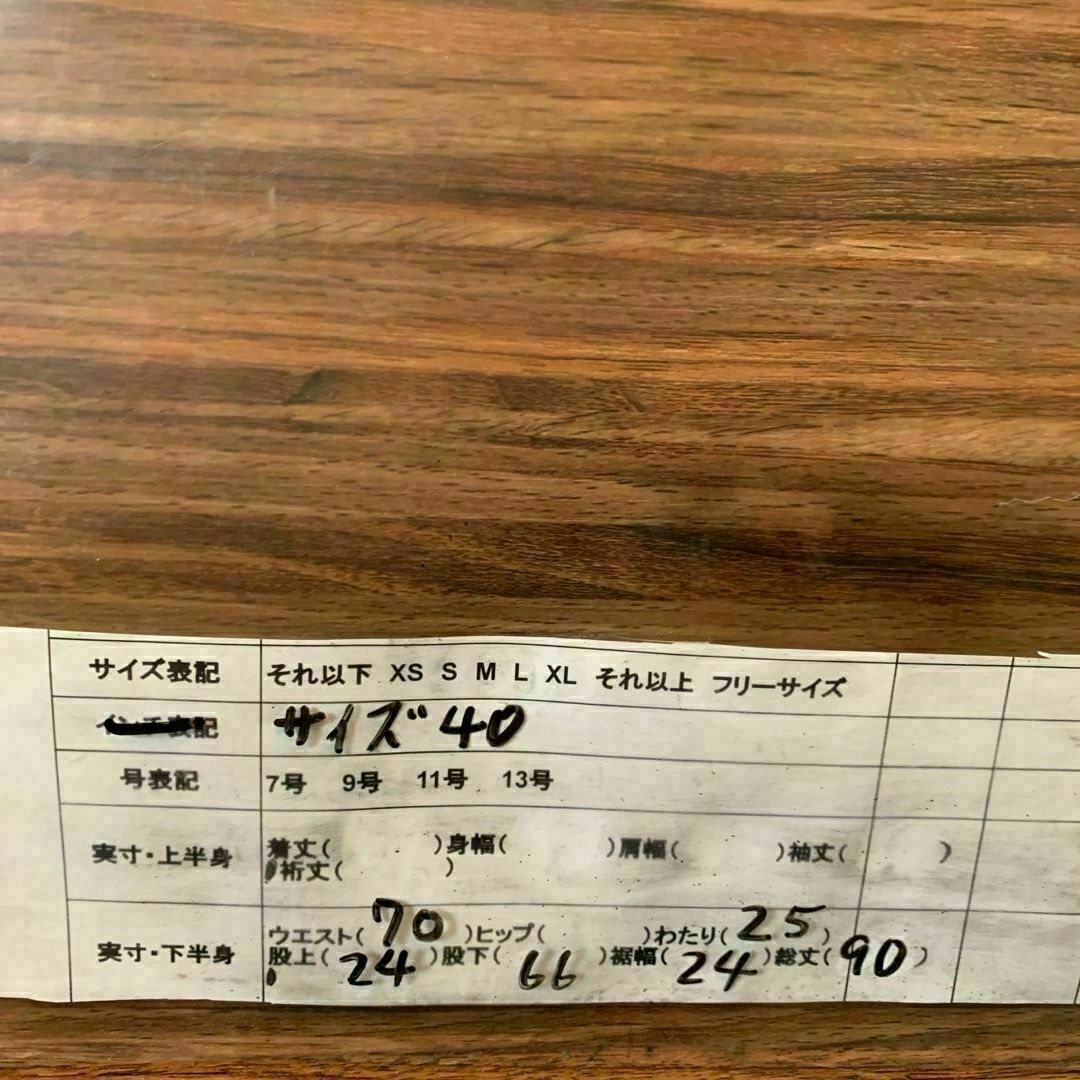 サイズ表記 それ以下 XS S M L XL それ以上 フリーサイズ
インチ表記 サイズ40
号表記 7号 9号 11号 13号
実寸・上半身 着丈( )身幅( )肩幅( )袖丈( )
裄丈( )
実寸・下半身 ウエスト(70)ヒップ( )わたり(25)
股上(24)股下(66)裾幅(24)総丈(90)